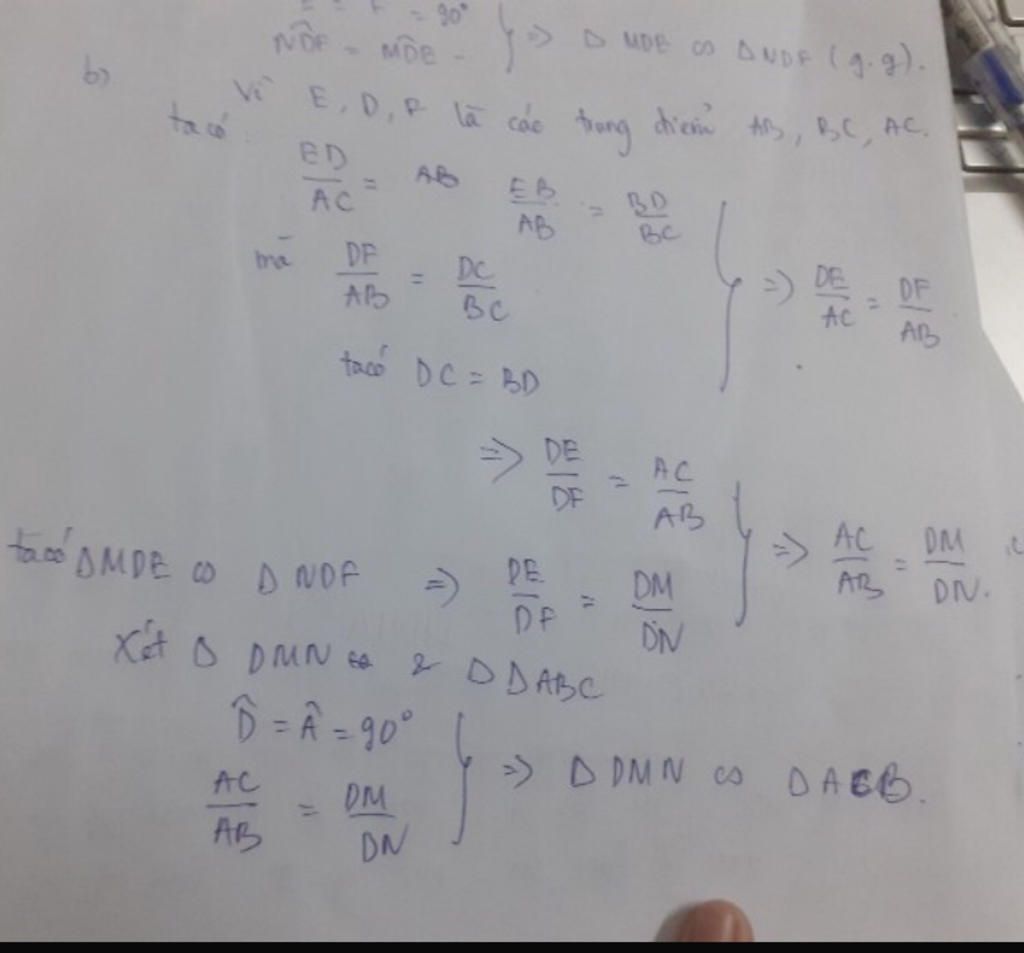 = 90°
NDF = MDE } => Δ MDE ∽ Δ NDF (g.g).
b) Vì E, D, F là các trung điểm AB, BC, AC.
ta có:
ED/AC = AB EB/AB = BD/BC
mà DF/AB = DC/BC } => DE/AC = DF/AB
ta có DC = BD
=> DE/DF = AC/AB
ta có ΔMDE ∽ Δ NDF => DE/DF = DM/DN } => AC/AB = DM/DN.
Xét Δ DMN & Δ DABC
D̂ = Â = 90°
AC/AB = DM/DN } => Δ DMN ∽ Δ ACB.